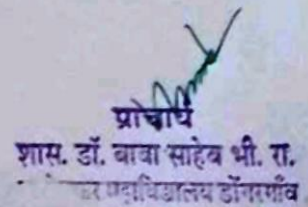 प्राचार्य
शास. डॉ. बाबा साहेब भी. रा.
महाविद्यालय डोंगरगाँव